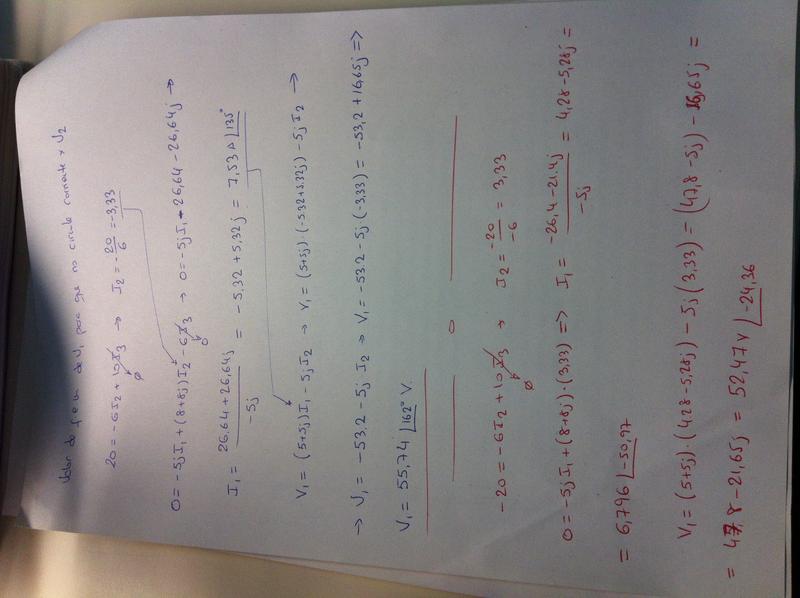 Valor do f.e.m de V₁ para que no circule corriente x V₂
20 = -6I₂ + 10I₃ → I₂ = -20/6 = -3,33
0
0 = -5jI₁ + (8+8j)I₂ - 6I₃ → 0 = -5jI₁ - 26,64 - 26,64j →
0
I₁ = 26.64 + 26,64j / -5j = -5.32 + 5,32j = 7,53 A ∠135°
V₁ = (5+5j)I₁ - 5jI₂ → V₁ = (5+5j)·(-5.32+5.32j) - 5jI₂ →
→ V₁ = -53.2 - 5jI₂ → V₁ = -53.2 - 5j(-3,33) = -53.2 + 16,65j =>
V₁ = 55,74 ∠162° V.
0
-20 = -6I₂ + 10I₃ → I₂ = -20/-6 = 3,33
0
0 = -5jI₁ + (8+8j)·(3,33) => I₁ = -26,4 - 21.4j / -5j = 4,28 - 5,28j =
= 6,796 ∠-50,97
V₁ = (5+5j)·(4.28 - 5,28j) - 5j(3,33) = (47,8 - 5j) - 16,65j =
= 47,8 - 21,65j = 52,47 V ∠-24,36